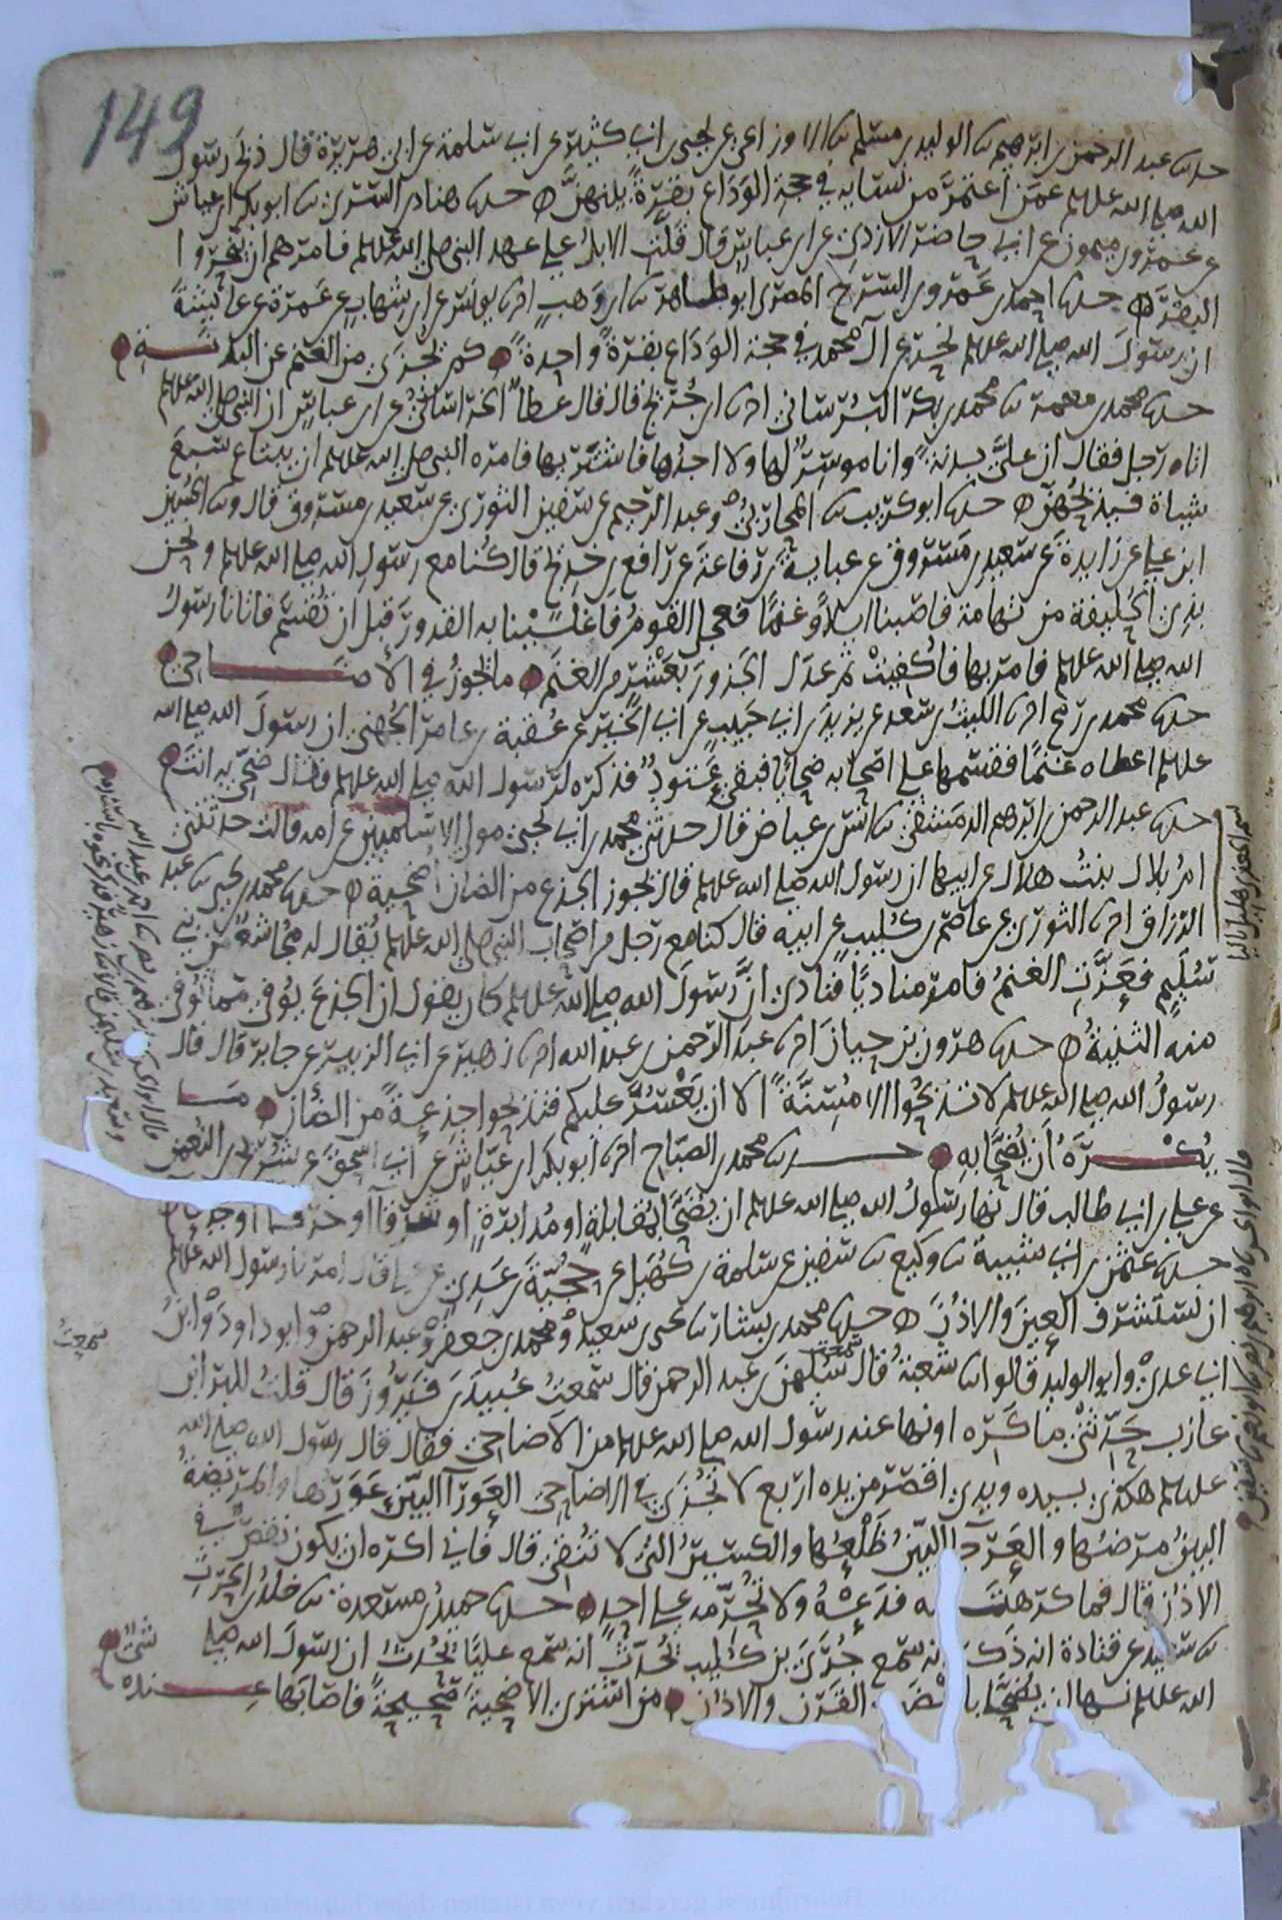 149
حدثنا عبد الرحمن بن ابرهيم ثنا الوليد بن مسلم ثنا الاوزاعي عن يحيى بن ابي كثير عن ابي سلمة عن ابي هريرة قال ذبح رسول
الله صلى الله عليه وسلم عمن اعتمر من نسايه في حجة الوداع بقرة بينهن حدثنا هناد بن السري ثنا ابو بكر بن عياش
عن عمرو بن ميمون عن ابي حاضر الازدي عن ابن عباس قال قلت الابل على عهد النبي صلى الله عليه وسلم فامرهم ان ينحروا ا
البقر حدثنا احمد بن عمرو بن السرح المصري ابو طاهر ثنا ابن وهب اخبرنا يونس عن ابن شهاب عن عمرة عن عائشة
ان رسول الله صلى الله عليه وسلم نحر عن آل محمد في حجة الوداع بقرة واحدة كم تجزي من الغنم عن البدنة
حدثنا محمد بن معمر ثنا محمد بن بكر البرساني اخبرنا ابن جريج قال قال عطا الخراساني عن ابن عباس ان النبي صلى الله عليه وسلم
اتاه رجل فقال ان علي بدنة وانا موسر لها ولا اجدها فاشتريها فامره النبي صلى الله عليه وسلم ان يبتاع سبع
شياة فيذبحهن حدثنا ابو كريب ثنا المحاربي وعبد الرحيم عن سفين الثوري عن سعيد بن مسروق قال وثنا الحسين
ابن علي عن زايدة عن سعيد بن مسروق عن عباية بن رفاعة عن رافع بن خديج قال كنا مع رسول الله صلى الله عليه وسلم ونحن
بذي الحليفة من تهامة فاصبنا ابلا وغنما فعجل القوم فاغلينا به القدور قبل ان تقسم فاتانا رسول
الله صلى الله عليه وسلم فامر بها فاكفيت ثم عدل الجزور بعشر من الغنم ما تجوز في الاضاحي
حدثنا محمد بن رمح اخبرنا الليث بن سعد عن يزيد بن ابي حبيب عن ابي الخير عن عقبة بن عامر الجهني ان رسول الله صلى الله
عليه وسلم اعطاه غنما فقسمها على اصحابه ضحايا فبقي عتود فذكره لرسول الله صلى الله عليه وسلم فقال ضح به انت
حدثنا عبد الرحمن بن ابرهيم الدمشقي ثنا انس بن عياض قال حدثني محمد بن ابي يحيى مولى الاسلميين عن امه قالت حدثتني
ام بلال بنت هلال عن ابيها ان رسول الله صلى الله عليه وسلم قال يجوز الجذع من الضان اضحية حدثنا محمد بن يحيى ثنا عبد
الرزاق اخبرنا الثوري عن عاصم بن كليب عن ابيه قال كنا مع رجل من اصحاب النبي صلى الله عليه وسلم يقال له مجاشع من بني
سليم فعزت الغنم فامر مناديا فنادى ان رسول الله صلى الله عليه وسلم كان يقول ان الجذع يوفي مما توفي
منه الثنية حدثنا هرون بن حيان اخبرنا عبد الرحمن بن عبد الله اخبرنا زهير عن ابي الزبير عن جابر قال قال
رسول الله صلى الله عليه وسلم لا تذبحوا الا مسنة الا ان يعسر عليكم فتذبحوا جذعة من الضان ما
يكره ان يضحا به حدثنا محمد بن الصباح اخبرنا ابو بكر بن عياش عن ابي اسحق عن شريح بن النعمن
عن علي بن ابي طالب قال نها رسول الله صلى الله عليه وسلم ان يضحا بمقابلة او مدابرة او شرقا او خرقا او جدعا
حدثنا عثمن بن ابي شيبة ثنا وكيع ثنا سفين عن سلمة بن كهيل عن حجية بن عدي عن علي قال امرنا رسول الله صلى الله عليه وسلم
ان نستشرف العين والاذن حدثنا محمد بن بشار ثنا يحيى بن سعيد ومحمد بن جعفر وعبد الرحمن وابو داود وابن
ابي عدي وابو الوليد قالوا ثنا شعبة قال سمعت سليمن بن عبد الرحمن قال سمعت عبيد بن فيروز قال قلت للبرا بن
عازب حدثني ما كره او نها عنه رسول الله صلى الله عليه وسلم من الاضاحي فقال قال رسول الله صلى الله
عليه وسلم هكذي بيده ويدي اقصر من يده اربع لا تجزي في الاضاحي العورا البين عورها والمريضة
البين مرضها والعرجا البين ظلعها والكسير التي لا تنقي قال فاني اكره ان يكون نقص في
الاذن قال فما كرهت منه فدعه ولا تحرمه على احد حدثنا حميد بن مسعدة ثنا خالد بن الحرث
ثنا سعيد عن قتادة انه ذكر انه سمع جري بن كليب يحدث انه سمع عليا يحدث ان رسول الله صلى
الله عليه وسلم نها ان يضحا باعضب القرن والاذن من اشترى الاضحية صحيحة فاصابها عنده
شي
سمعت